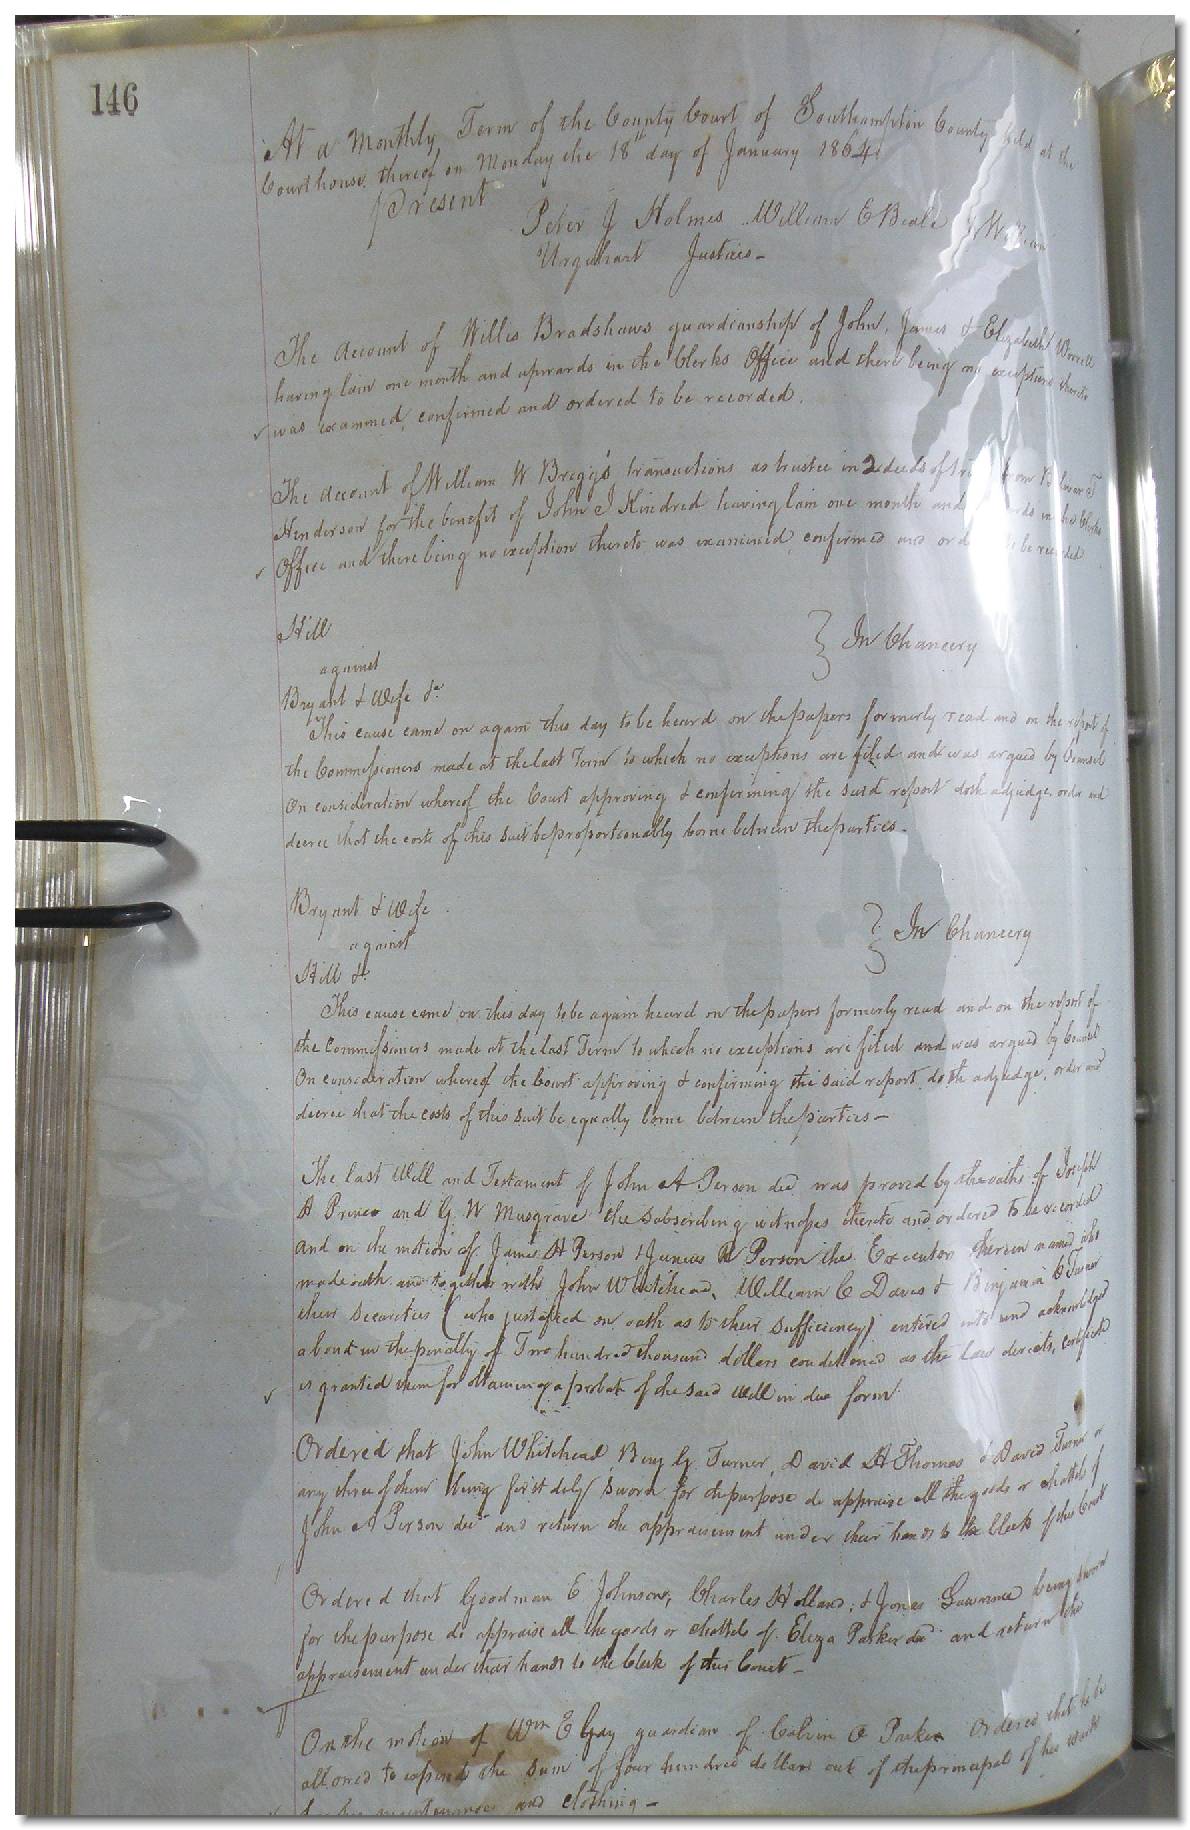 146
At a Monthly Term of the County Court of Southampton County held at the
Courthouse thereof on Monday the 18th day of January 1864
Present
Peter J Holmes William E Beale & William
Urquhart Justices -
The account of Willis Bradshaws guardianship of John, James & Elizabeth Worrell
having lain one month and upwards in the Clerks Office and there being no exception thereto
was examined, confirmed and ordered to be recorded.
The account of William W Briggs transactions as trustee in 2 deeds of from
Henderson for the benefit of John J Kindred having lain one month and in the Clerks
Office and there being no exception thereto was examined, confirmed and be recorded
Hill
against
Bryant & Wife &c
In Chancery
This cause came on again this day to be heard on the papers formerly read and on the report of
the Commissioners made at the last Term to which no exceptions are filed and was argued by Counsel
On consideration whereof the Court approving & confirming the said report doth adjudge order and
decree that the costs of this suit be proportionably borne between the parties.
Bryant & Wife
against
Hill &c
In Chancery
This cause came on this day to be again heard on the papers formerly read and on the report of
the Commissioners made at the last Term to which no exceptions are filed and was argued by Counsel
On consideration whereof the Court approving & confirming the said report, doth adjudge, order and
decree that the costs of this suit be equally borne between the parties -
The last Will and Testament of John A Person decd was proved by the oaths of Joseph
H Prince and G. W Musgrave the subscribing witnesses thereto and ordered to be recorded
and on the motion of James H Person & Junius Person the Executor therein named who
made oath and together with John Whitehead, William C Davis & Benjamin G Turner
their Securities (who justified on oath as to their sufficiency) entered into and acknowledged
a bond in the penalty of Two hundred thousand dollars conditioned as the law directs, certificate
is granted them for obtaining a probate of the said Will in due form
Ordered that John Whitehead, Benj G. Turner, David H Thomas & David Turner or
any three of them being first duly sworn for the purpose do appraise all the goods or chattels of
John A Person decd and return the appraisement under their hands to the Clerk of this Court
Ordered that Goodman E Johnson, Charles Holland, & Jonas Lawrence being sworn
for the purpose do appraise all the goods or chattels of Eliza Parker decd and return the
appraisement under their hands to the Clerk of this Court -
On the motion of Wm E Gay guardian of Calvin Parker Ordered that he be
allowed to expend the sum of four hundred dollars out of the principal of his wards
maintenance and clothing -